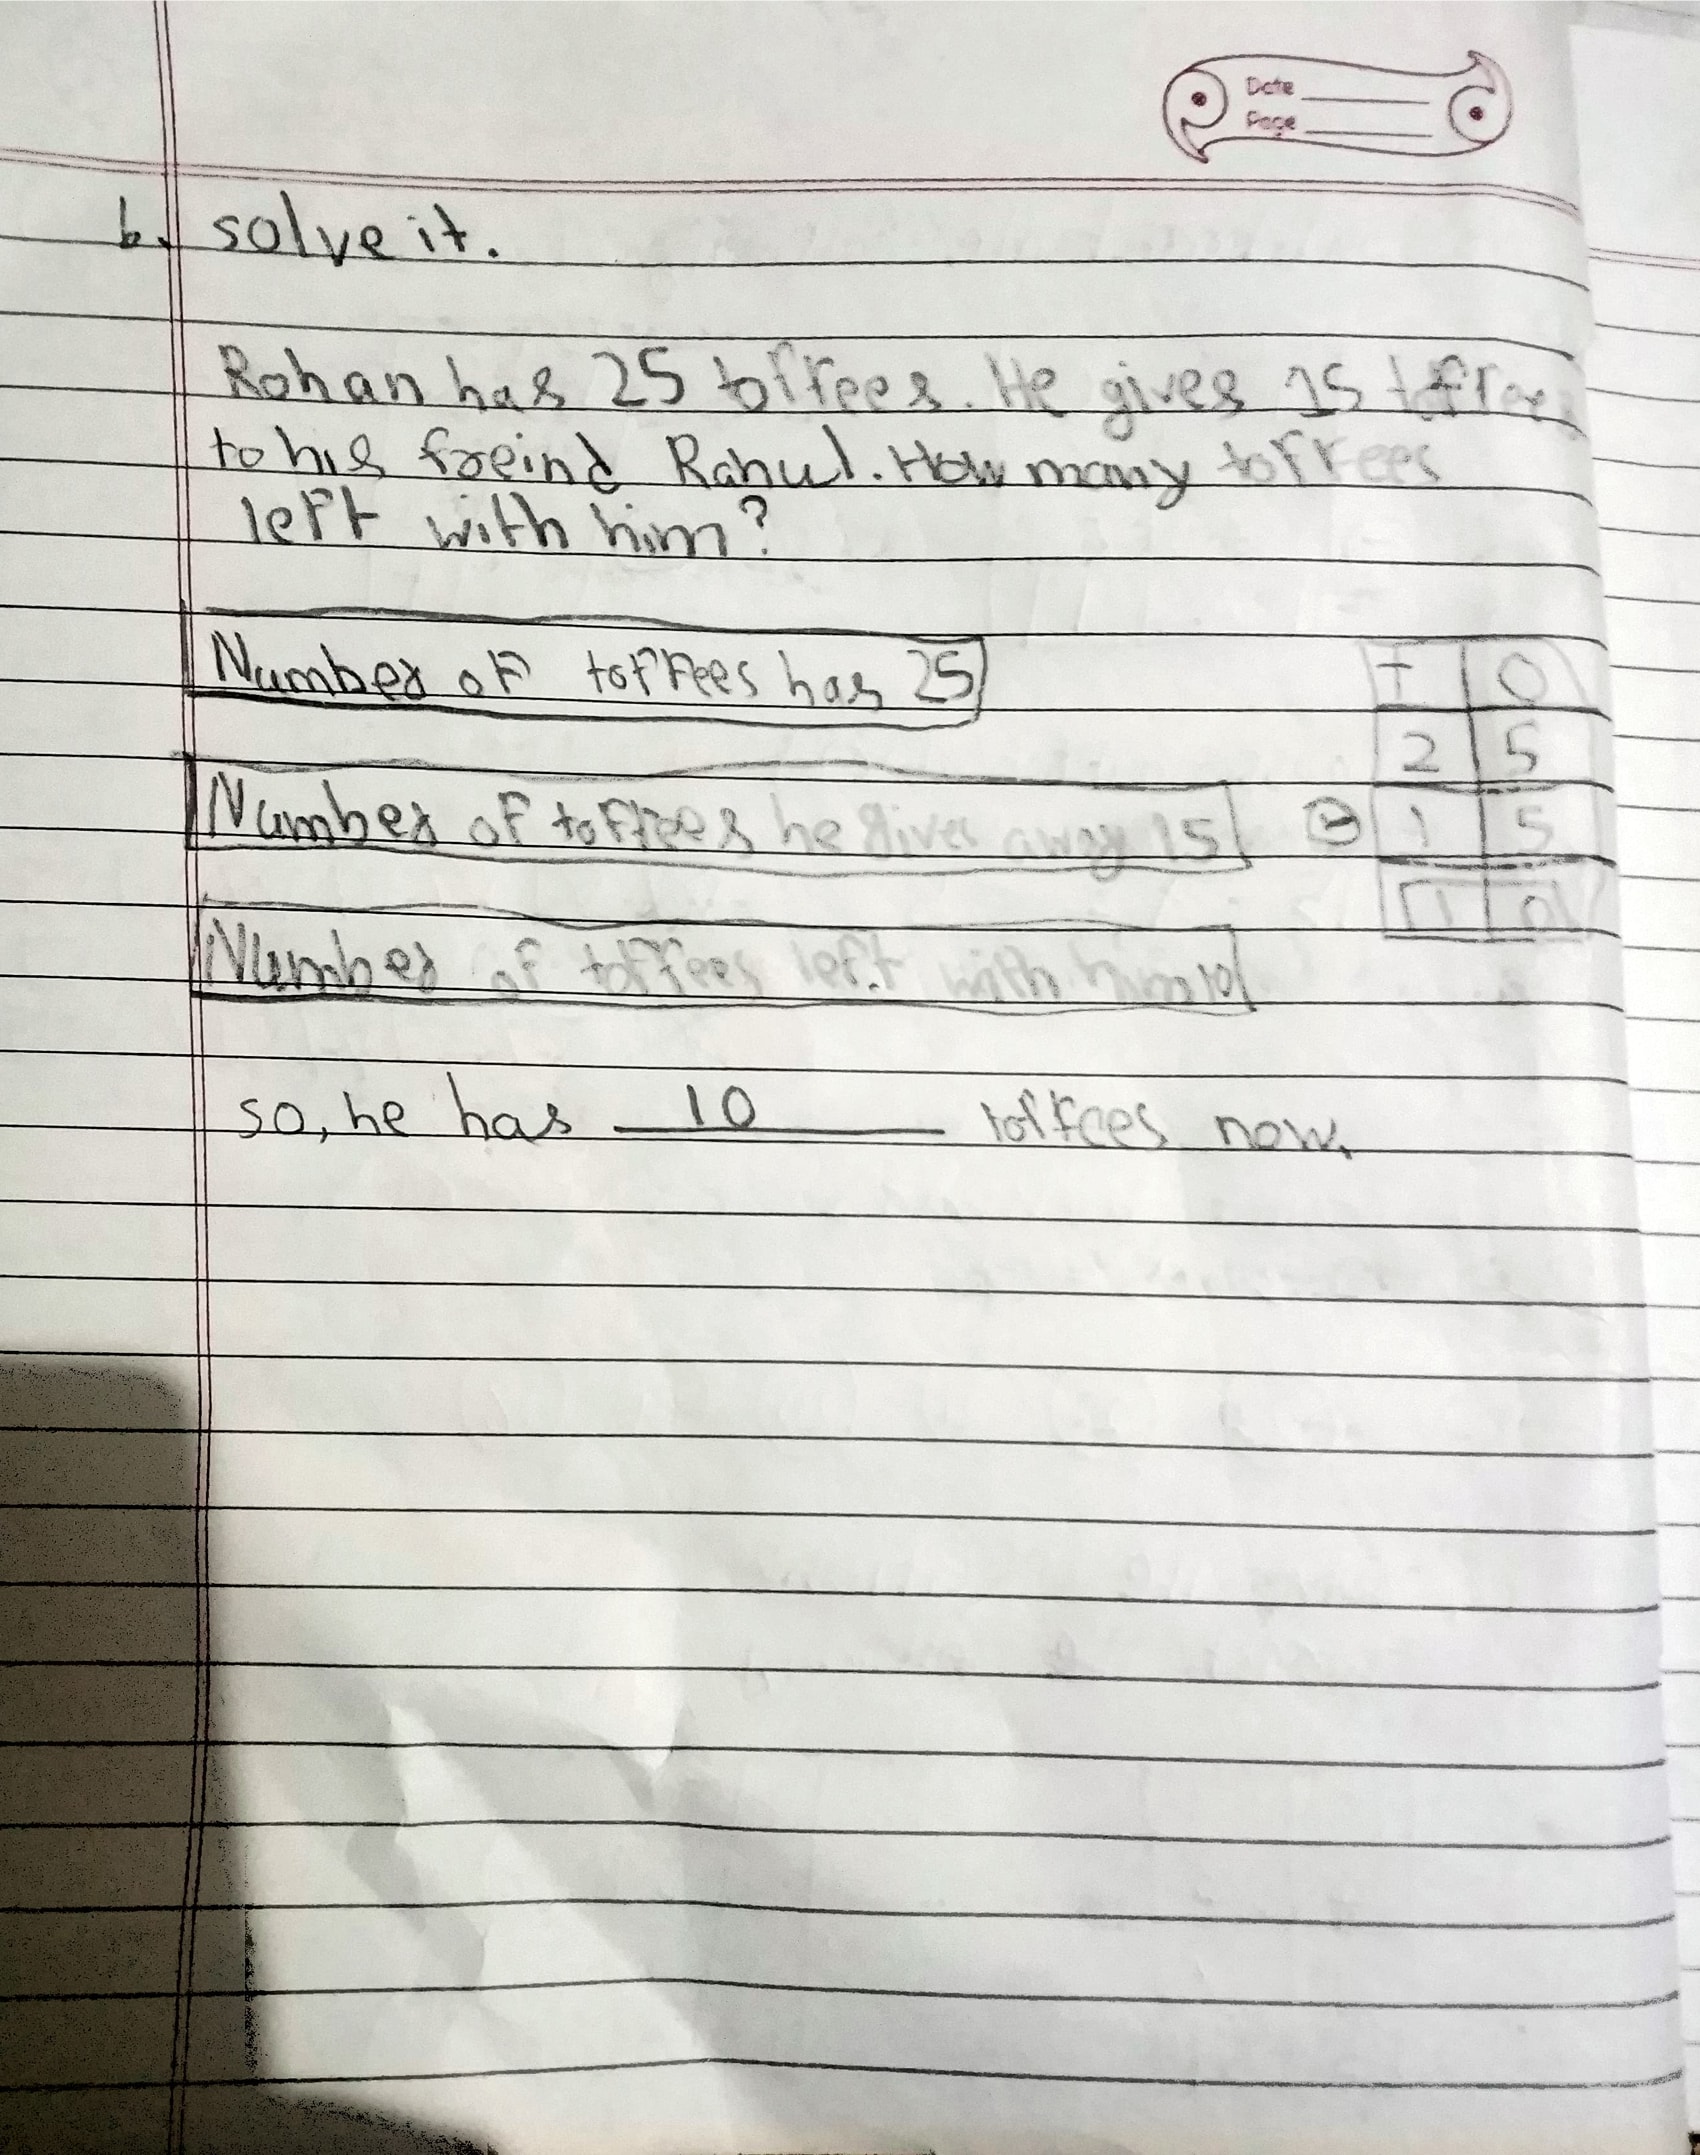 Date
Page
6. solve it.
Rohan has 25 toffees. He gives 15 toffees
to his freind Rahul. How many toffees
left with him?
Number of toffees has 25
T O
2 5
Number of toffees he gives away 15
- 1 5
1 0
Number of toffees left with him 10
so, he has 10 toffees now.